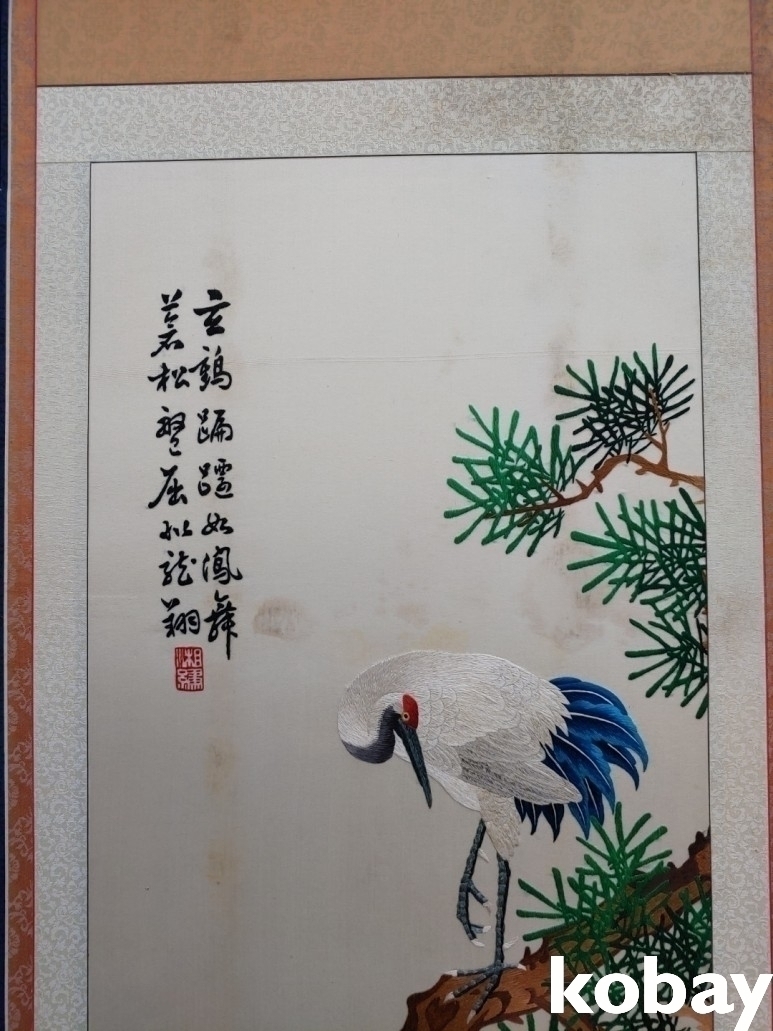 玄鶴蹁躚如鳳舞
蒼松盤屈似龍翔
湘繡
kobay